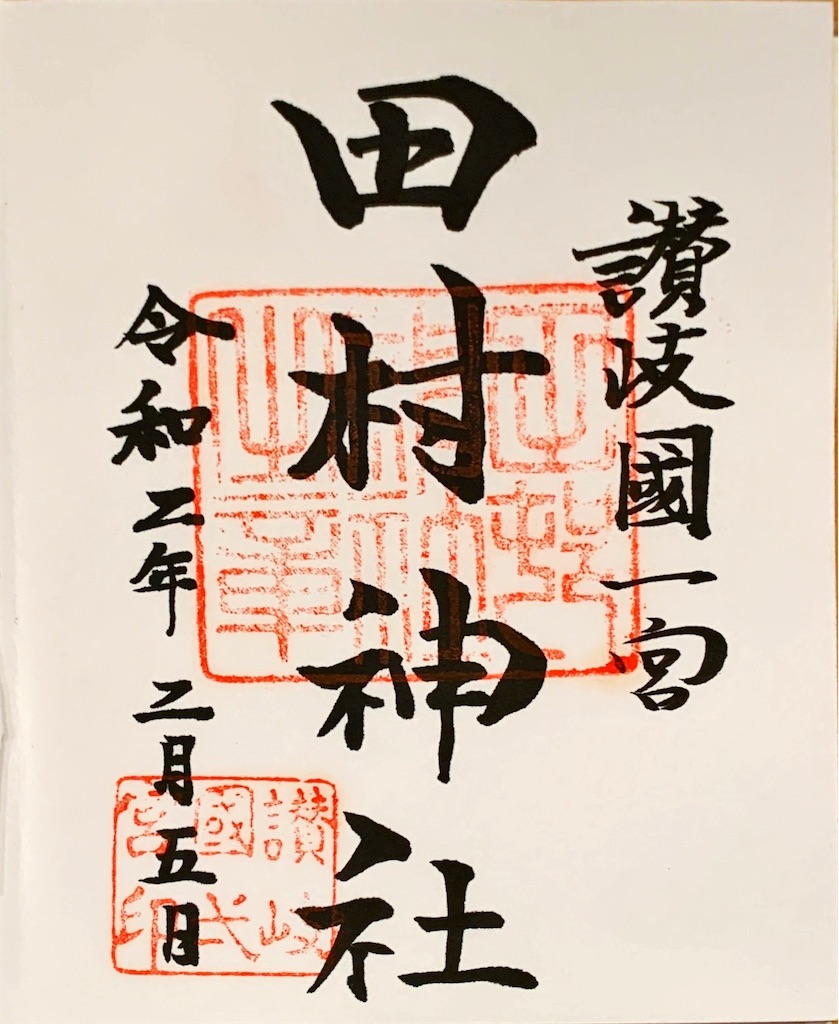 讃岐國一宮
田村神社
令和二年二月五日
讃岐
國弌
宮印